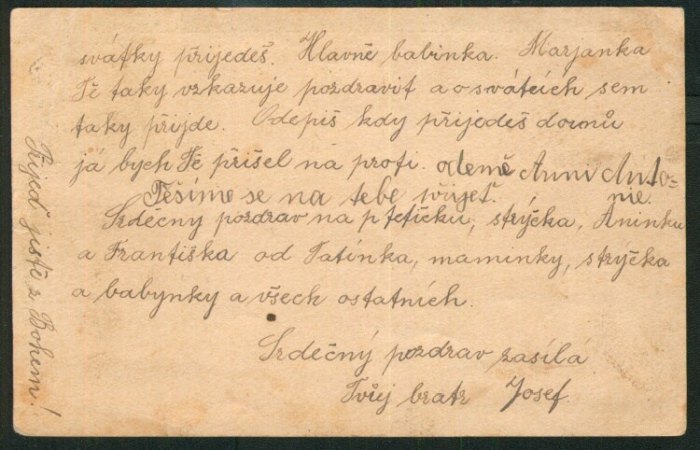 svátky přijedeš. Hlavně babinka. Marjanka
Tě taky vzkazuje pozdravit a o svátcích sem
taky přijde. Odepiš kdy přijedeš domů
já bych Tě přišel na proti. odemě Anni Anto=
nie.
Těšíme se na tebe přijeť.
Srdečný pozdrav na p tetičku, strýčka, Aninku
a Františka od Tatínka, maminky, strýčka
a babynky a všech ostatních.
Srdečný pozdrav zasílá
Tvůj bratr Josef.
Přijeď jistě z Bohem!